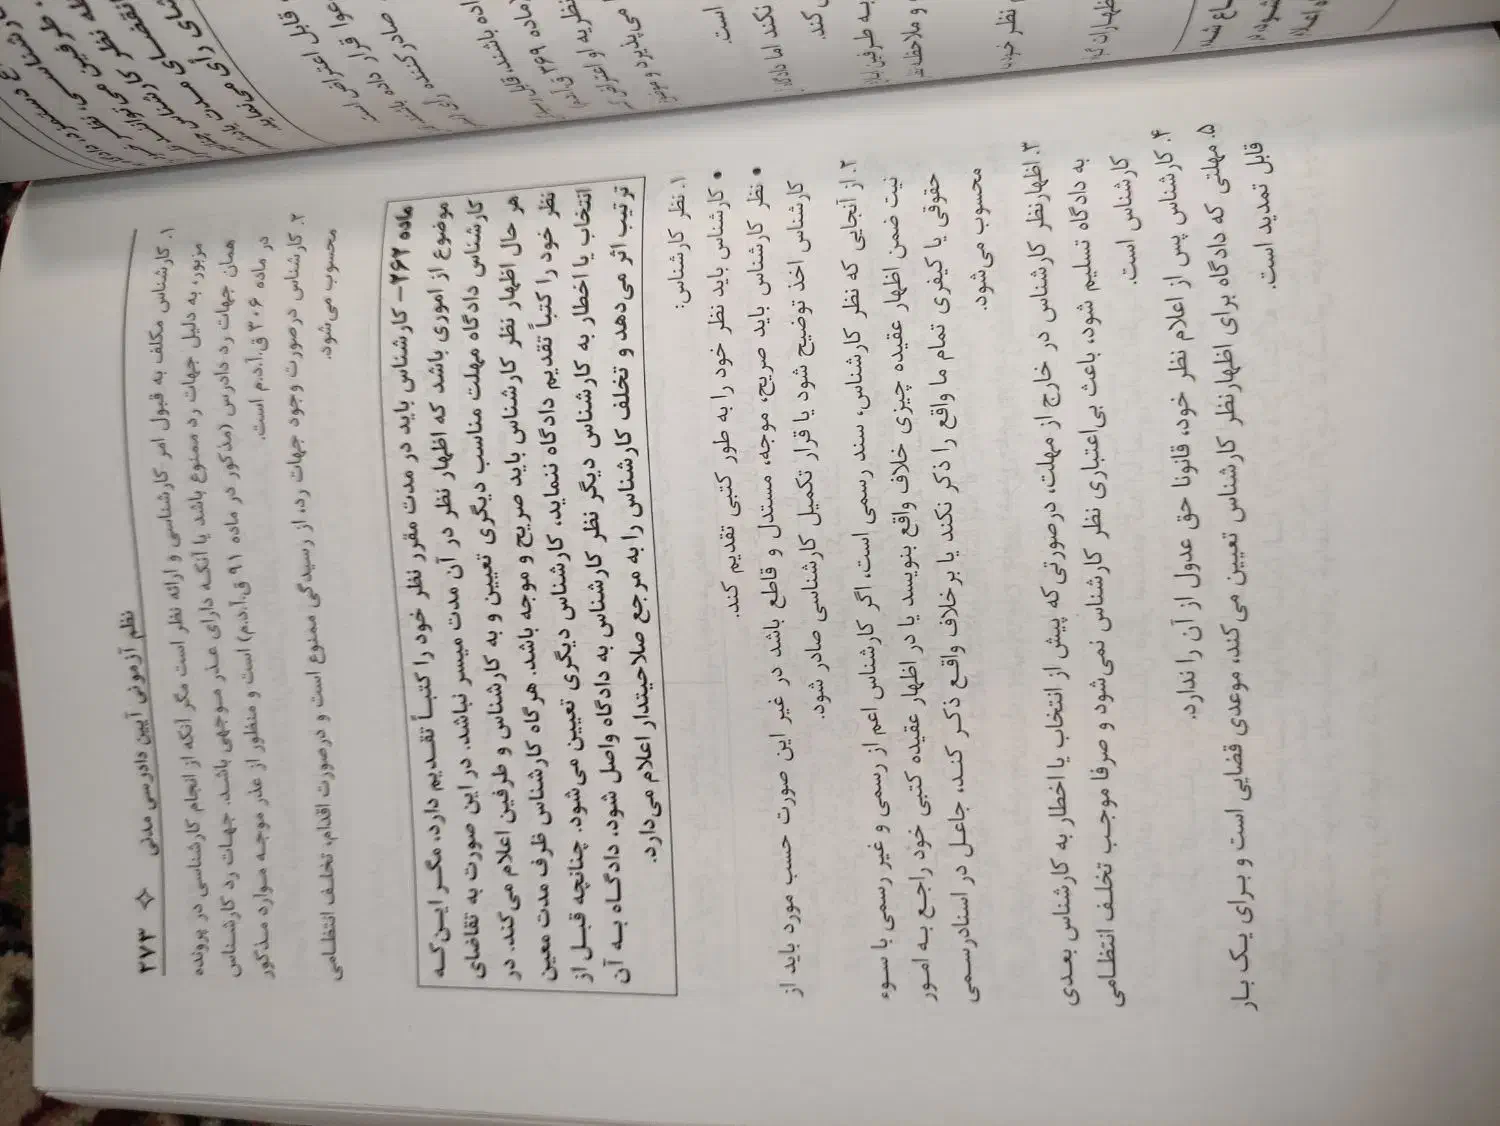 نظم آزمونی آیین دادرسی مدنی ✧ ۲۷۳
۱. کارشناس مکلف به قبول امر کارشناسی و ارائه نظر است مگر آنکه از انجام کارشناسی در پرونده
مزبور، به دلیل جهات رد ممنوع باشد یا آنکه دارای عذر موجهی باشد. جهات رد کارشناس
همان جهات رد دادرس (مذکور در ماده ۹۱ ق.آ.د.م) است و منظور از عذر موجه موارد مذکور
در ماده ۳۰۶ ق.آ.د.م است.
۲. کارشناس درصورت وجود جهات رد، از رسیدگی ممنوع است و درصورت اقدام، تخلف انتظامی
محسوب می‌شود.
ماده ۲۶۲– کارشناس باید در مدت مقرر نظر خود را کتباً تقدیم دارد، مگر این‌که
موضوع از اموری باشد که اظهار نظر در آن مدت میسر نباشد. در این صورت به تقاضای
کارشناس دادگاه مهلت مناسب دیگری تعیین و به کارشناس و طرفین اعلام می‌کند. در
هر حال اظهار نظر کارشناس باید صریح و موجه باشد. هرگاه کارشناس ظرف مدت معین
نظر خود را کتباً تقدیم دادگاه ننماید، کارشناس دیگری تعیین می‌شود. چنانچه قبل از
انتخاب یا اخطار به کارشناس دیگر نظر کارشناس به دادگاه واصل شود، دادگاه به آن
ترتیب اثر می‌دهد و تخلف کارشناس را به مرجع صلاحیتدار اعلام می‌دارد.
۱. نظر کارشناس:
• کارشناس باید نظر خود را به طور کتبی تقدیم کند.
• نظر کارشناس باید صریح، موجه، مستدل و قاطع باشد در غیر این صورت حسب مورد باید از
کارشناس اخذ توضیح شود یا قرار تکمیل کارشناسی صادر شود.
۲. از آنجایی که نظر کارشناس، سند رسمی است، اگر کارشناس اعم از رسمی و غیر رسمی با سوء
نیت ضمن اظهار عقیده چیزی خلاف واقع بنویسد یا در اظهار عقیده کتبی خود راجع به امور
حقوقی یا کیفری تمام ما واقع را ذکر نکند یا برخلاف واقع ذکر کند، جاعل در اسنادرسمی
محسوب می‌شود.
۳. اظهارنظر کارشناس در خارج از مهلت، درصورتی‌که پیش از انتخاب یا اخطار به کارشناس بعدی
به دادگاه تسلیم شود، باعث بی‌اعتباری نظر کارشناس نمی‌شود و صرفا موجب تخلف انتظامی
کارشناس است.
۴. کارشناس پس از اعلام نظر خود، قانونا حق عدول از آن را ندارد.
۵. مهلتی که دادگاه برای اظهارنظر کارشناس تعیین می‌کند، موعدی قضایی است و برای یک بار
قابل تمدید است.